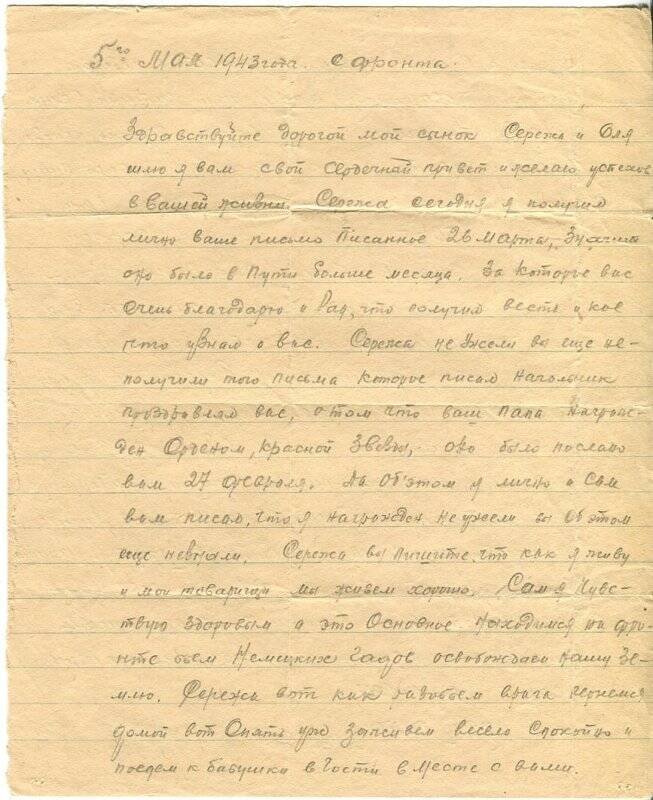 5го Мая 1943 года. С фронта.
Здравствуйте дорогой мой сынок Сережа и Оля
шлю я вам свой сердечный привет и желаю успехов
в вашей жизни. Сережа сегодня я получил
лично ваше письмо писанное 26 марта, Значит
оно было в пути больше месяца. За которое вас
очень благодарю и Рад, что получил весть и кое
что узнал о вас. Сережа не Ужели вы еще не-
получили того письма которое писал начальник
проздравлял вас, о том что ваш папа награж-
ден Орденом, Красной Звезды, оно было послано
вам 27 февраля. Да об'этом я лично и Сам
вам писал, что я награжден не ужели вы об этом
еще незнали. Сережа вы пишите, что как я живу
и мои товарищи мы живем хорошо. Сам я чувс-
твую здоровым а это Основное находимся на фро-
нте бьем Немецких Гадов освобождаем нашу Зе-
млю. Сережа вот как разобьем врага вернемся
домой вот Опять уже заживем весело Спокойно и
поедем к бабушки в Гости в месте с вами.